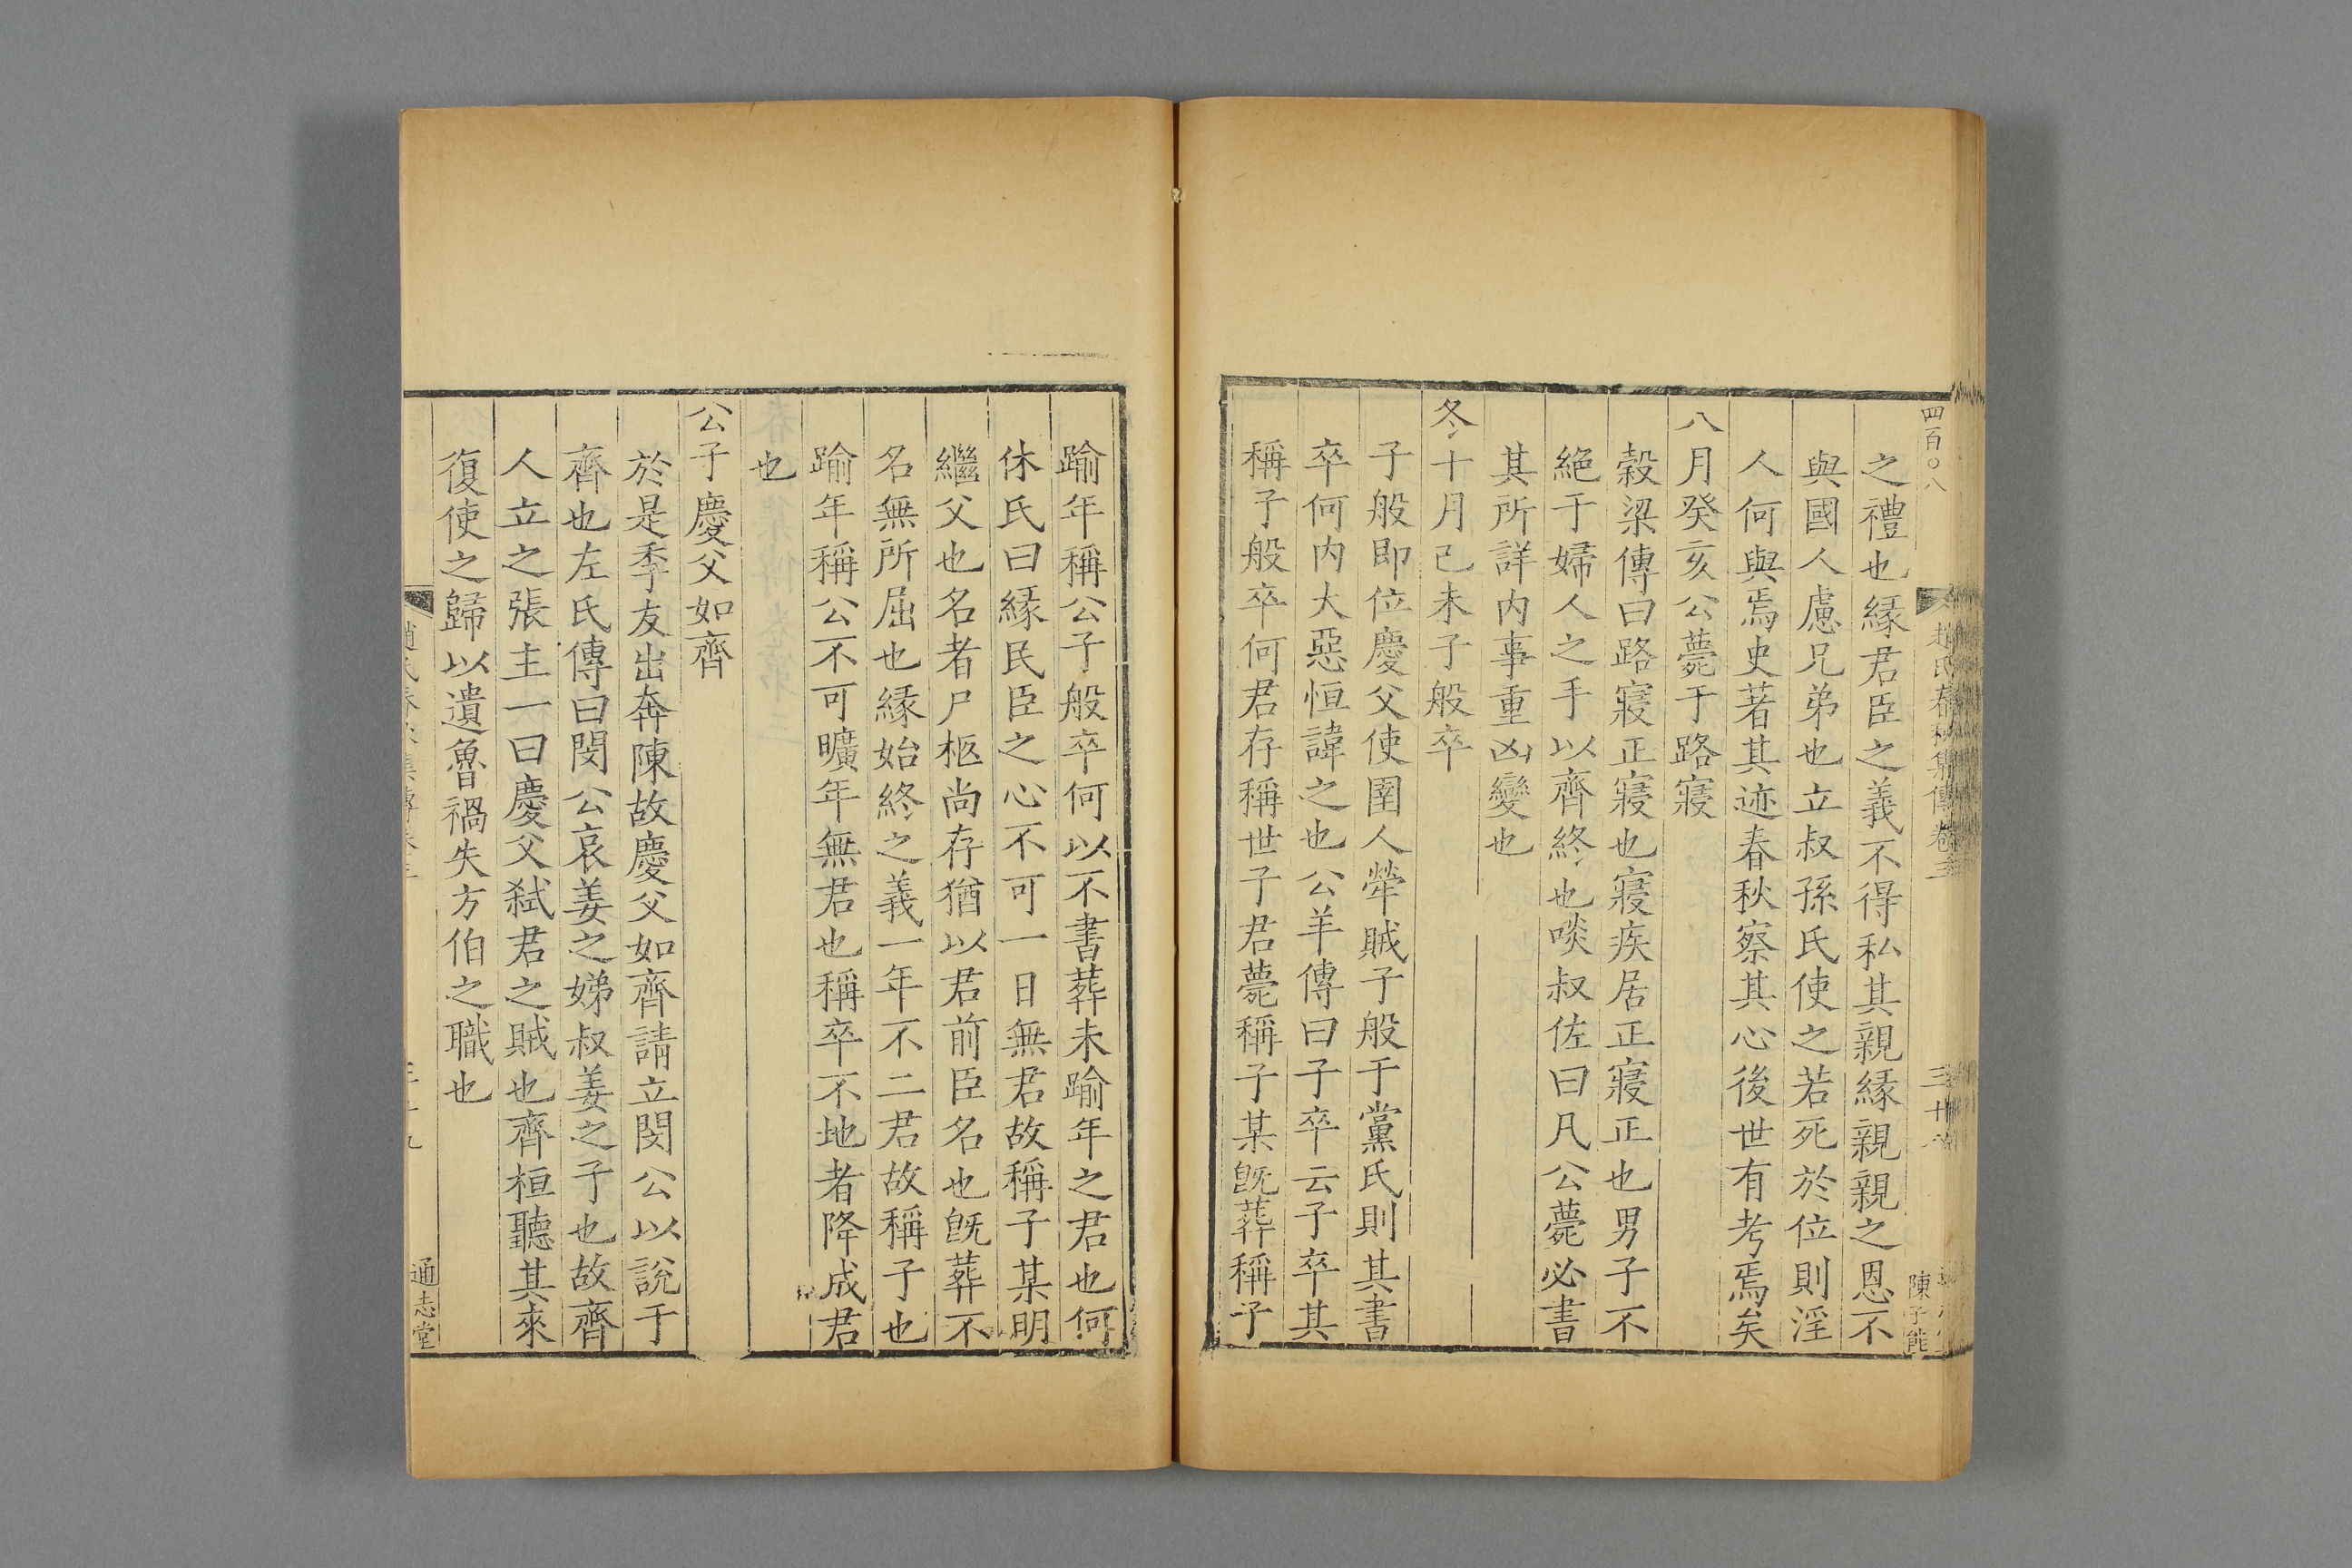 四百〇八
趙氏春秋集傳卷三
陳子能
之禮也緣君臣之義不得私其親緣親親之恩不
與國人慮兄弟也立叔孫氏使之若死於位則淫
人何與焉史著其迹春秋察其心後世有考焉矣
八月癸亥公薨于路寢
穀梁傳曰路寢正寢也寢疾居正寢正也男子不
絶于婦人之手以齊終也啖叔佐曰凡公薨必書
其所詳内事重凶變也
冬十月己未子般卒
子般即位慶父使圉人犖賊子般于黨氏則其書
卒何内大惡恒諱之也公羊傳曰子卒云子卒其
稱子般卒何君存稱世子君薨稱子某旣葬稱子
踰年稱公子般卒何以不書葬未踰年之君也何
休氏曰緣民臣之心不可一日無君故稱子某明
繼父也名者尸柩尚存猶以君前臣名也旣葬不
名無所屈也緣始終之義一年不二君故稱子也
踰年稱公不可曠年無君也稱卒不地者降成君
也
公子慶父如齊
於是季友出奔陳故慶父如齊請立閔公以說于
齊也左氏傳曰閔公哀姜之娣叔姜之子也故齊
人立之張主一曰慶父弑君之賊也齊桓聽其來
復使之歸以遺魯禍失方伯之職也
通志堂